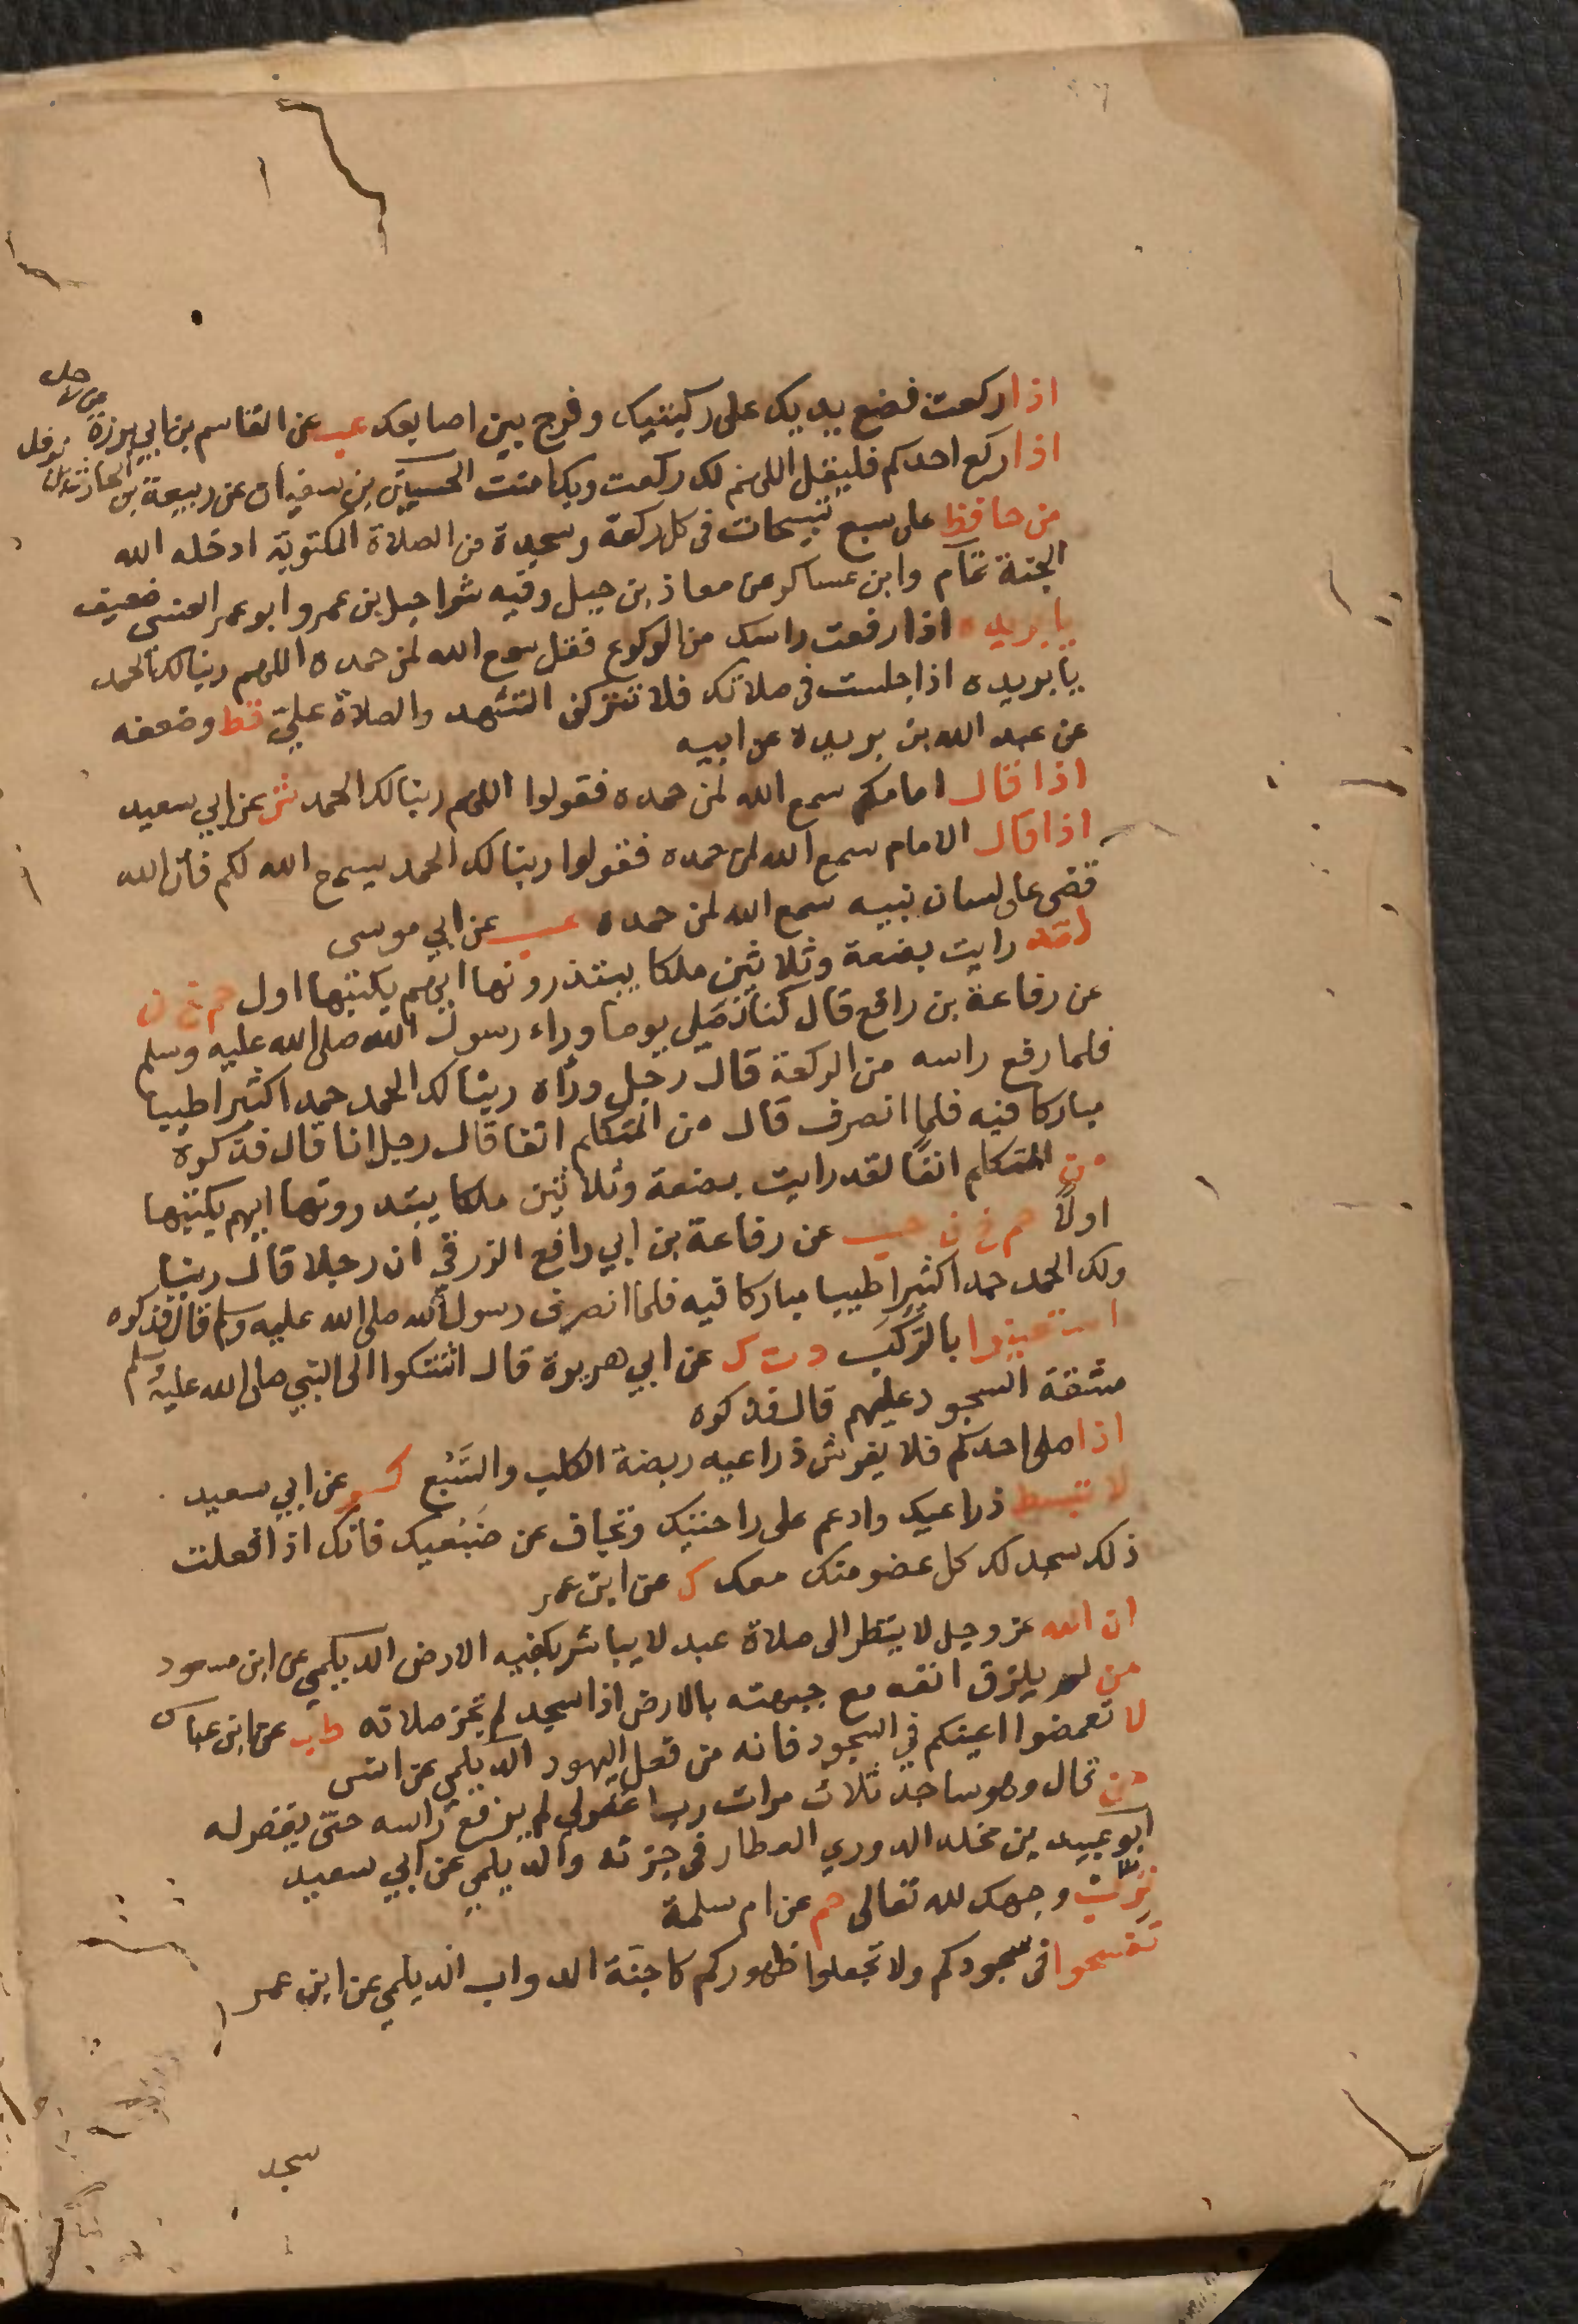 اذا ركعت فضع يديك على ركبتيك وفرج بين اصابعك عب عن القاسم بن ابي برزة
اذا ركع احدكم فليقل اللهم لك ركعت وبك امنت الحسين بن سفيان عن ربيعة بن الحارث بن نوفل
من حافظ على سبع تسبيحات في كل ركعة وسجدة من الصلاة المكتوبة ادخله الله
الجنة تمام وابن عساكر عن معاذ بن جبل وفيه شراحيل بن عمرو ابو عمر العنسي ضعيف
يا بريده اذا رفعت راسك من الركوع فقل سمع الله لمن حمده اللهم ربنا لك الحمد
يا بريده اذا جلست في صلاتك فلا تتركن التشهد والصلاة علي قط وضعفه
عن عبد الله بن بريدة عن ابيه
اذا قال امامكم سمع الله لمن حمده فقولوا اللهم ربنا لك الحمد ش عن ابي سعيد
اذا قال الامام سمع الله لمن حمده فقولوا ربنا لك الحمد يسمع الله لكم فان الله
قضى على لسان نبيه سمع الله لمن حمده عب عن ابي موسى
لقد رايت بضعة وثلاثين ملكا يبتدرونها ايهم يكتبها اول حم خ ن
عن رفاعة بن رافع قال كنا نصلي يوما وراء رسول الله صلى الله عليه وسلم
فلما رفع راسه من الركعة قال رجل وراه ربنا لك الحمد حمدا كثيرا طيبا
مباركا فيه فلما انصرف قال من المتكلم انفا قال رجل انا قال فذكره
من المتكلم انفا لقد رايت بضعة وثلاثين ملكا يبتدرونها ايهم يكتبها
اولاً حم خ ن حب عن رفاعة بن ابي رافع الزرقي ان رجلا قال ربنا
ولك الحمد حمدا كثيرا طيبا مباركا فيه فلما انصرف رسول الله صلى الله عليه وسلم قال فذكره
استعينوا بالركب د ت ك عن ابي هريرة قال اشتكوا الى النبي صلى الله عليه وسلم
مشقة السجود عليهم قال فذكره
اذا صلى احدكم فلا يفرش ذراعيه ربضة الكلب والسبع كر عن ابي سعيد
لا تبسط ذراعيك وادعم على راحتيك وتجاف عن ضبعيك فانك اذا فعلت
ذلك سجد لك كل عضو منك معك ك عن ابن عمر
ان الله عز وجل لا ينظر الى صلاة عبد لا يباشر بكفيه الارض الديلمي عن ابن مسعود
من لم يلزق انفه مع جبهته بالارض اذا سجد لم تجز صلاته طب عن ابن عباس
لا تغمضوا اعينكم في السجود فانه من فعل اليهود الديلمي عن انس
من قال وهو ساجد ثلاث مرات رب اغفر لي لم يرفع راسه حتى يغفر له
ابو عبيد بن مخلد الدوري العطار في جزئه والديلمي عن ابي سعيد
ترب وجهك لله تعالى حم عن ام سلمة
تفسحوا في سجودكم ولا تجعلوا ظهوركم كاجنة الدواب الديلمي عن ابن عمر
سجد